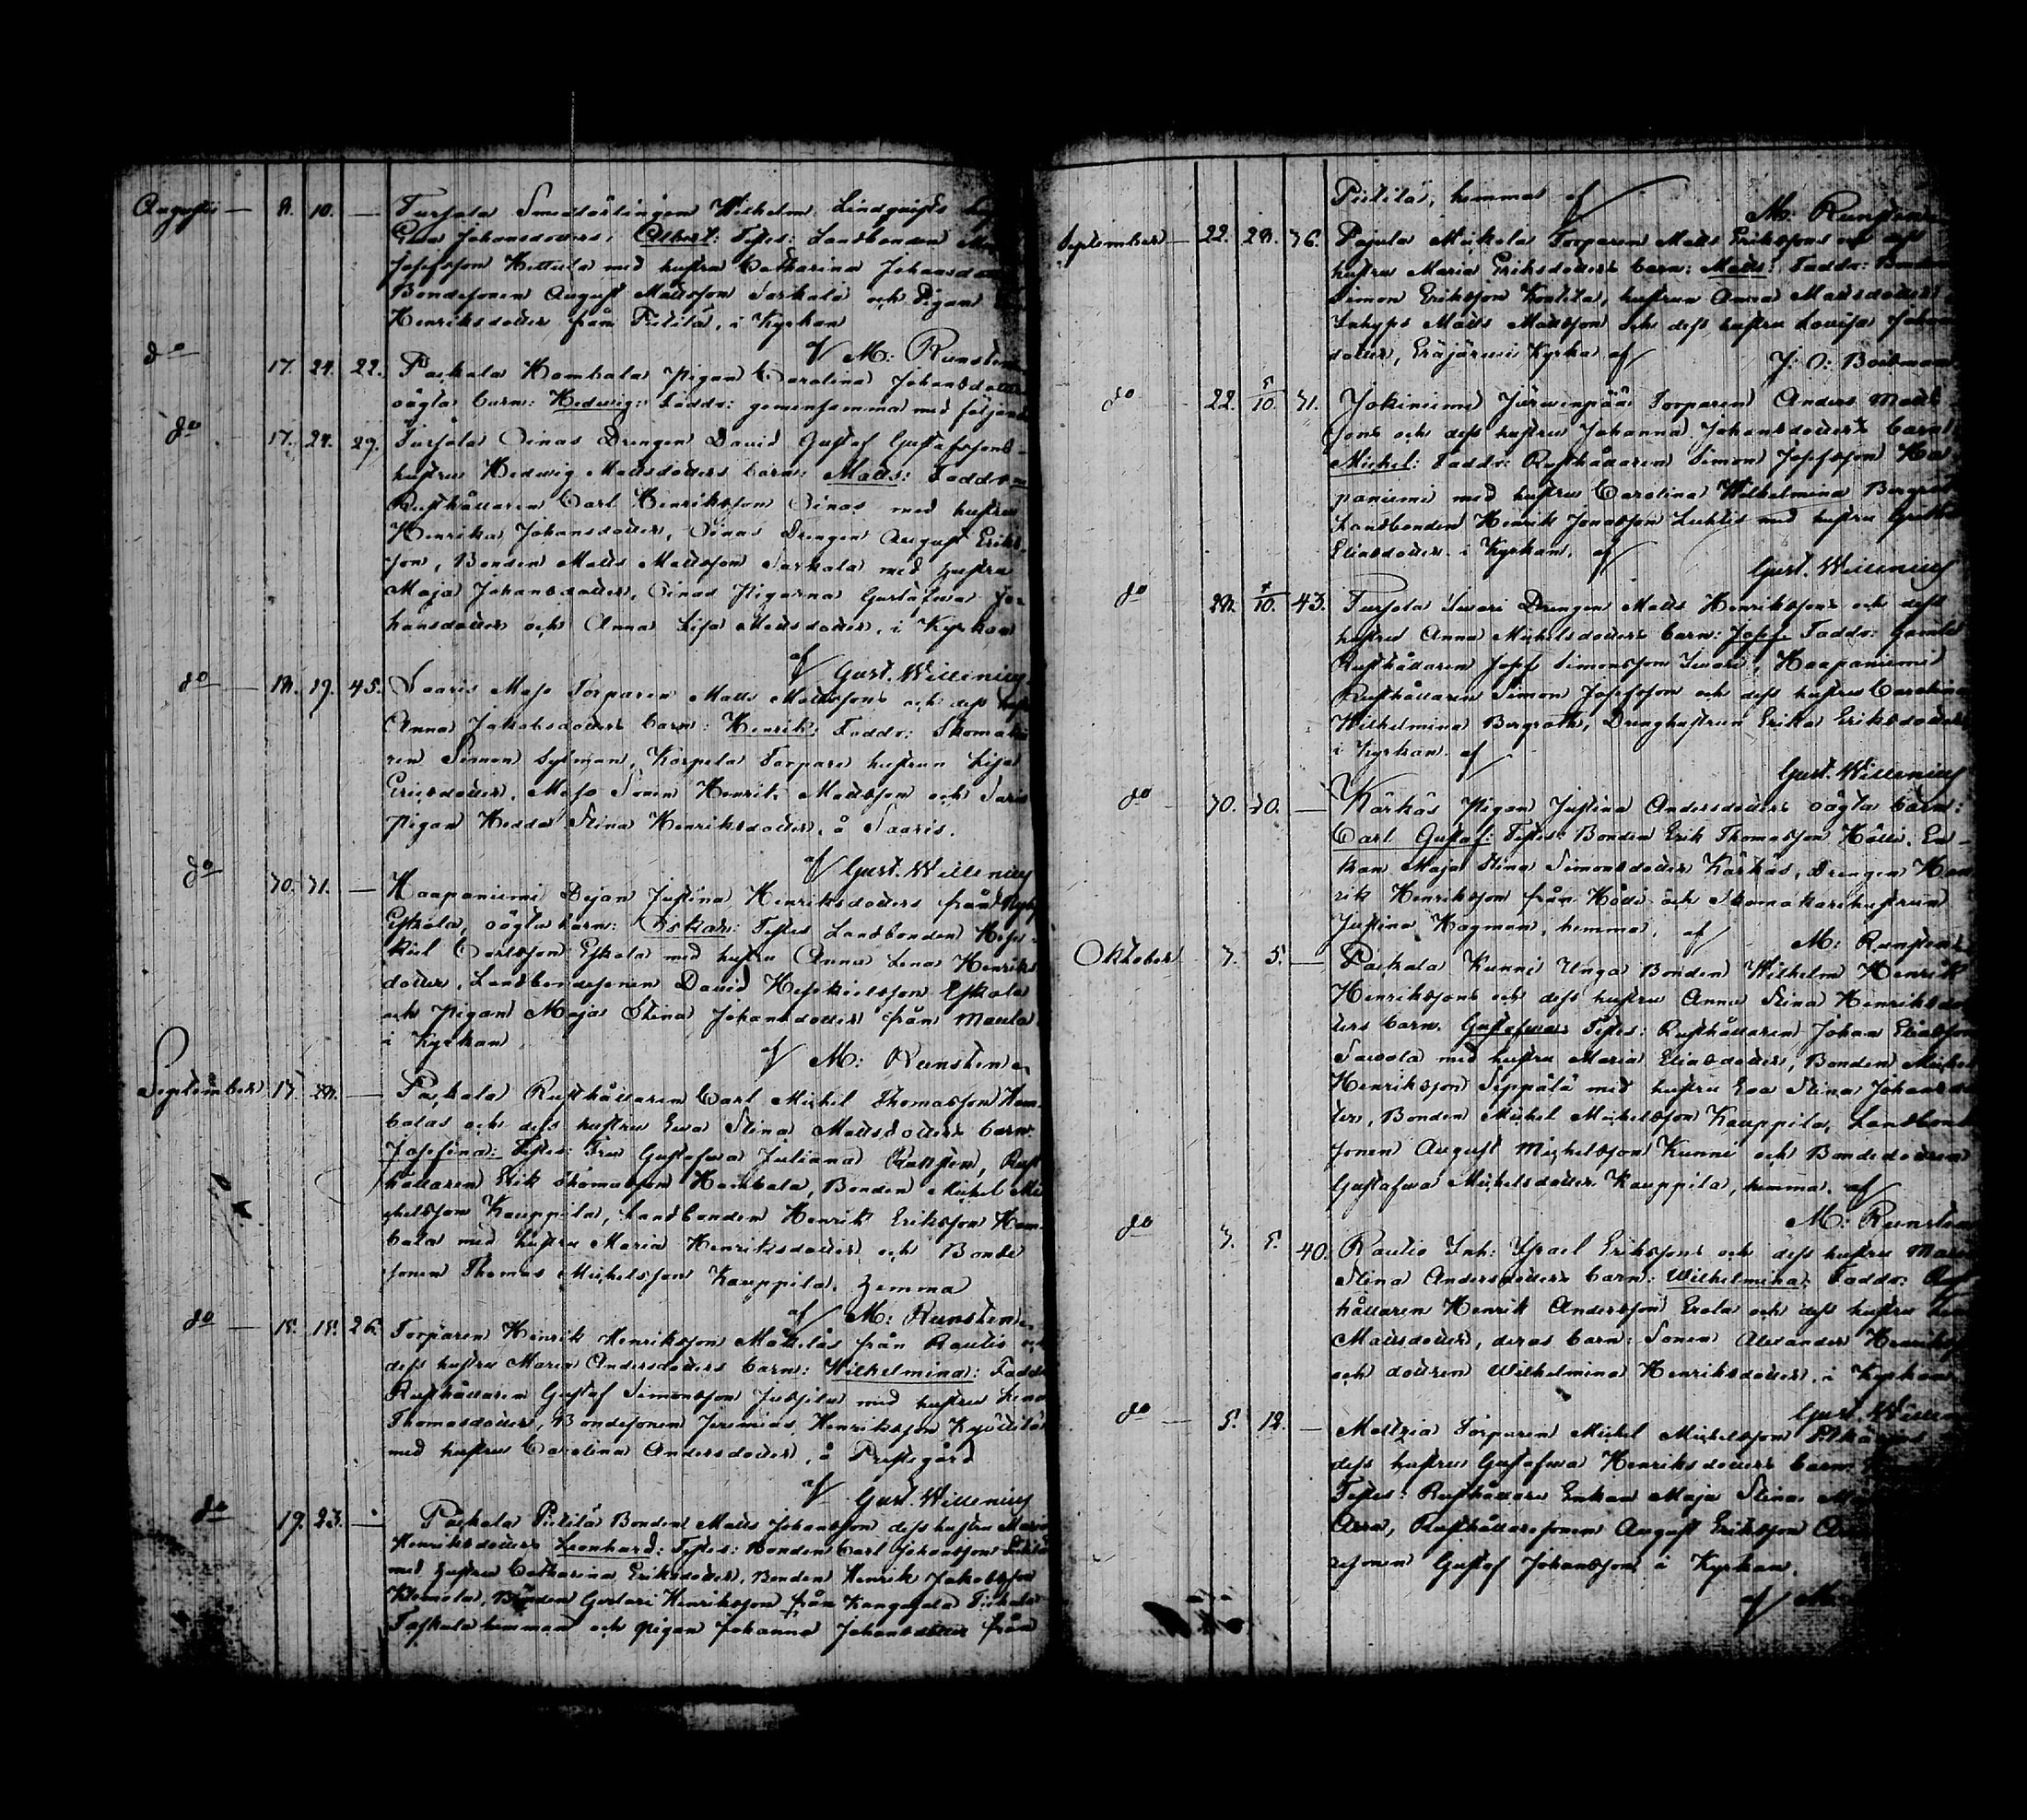 Augusti — 8. 10. — Tursola Smedlärlingen Wilhelm Lindqvists
Ewa Johansdotters: Albert: Testes: Landbonden
Josefsson Hettula med hustru Catharina Johansdotter
Bondesonen August Mattsson Sarkala och Pigan
Henriksdotter från Tiitilä, i Kyrkan
af M: Runsten
do 17. 24. 22. Paskala Hombala Pigan Carolina Johansdotters
oägta barn: Hedwig: Faddr: gemensamma med följande
do 17. 24. 29. Turjola Oinas Drengen David Gustaf Gustafssons
hustru Hedwig Mattsdotters barn: Matts: Faddr:
Rusthållaren Carl Henriksson Oinas med hustru
Henrika Johansdotter, Oinas Drengen August Eriks-
son, Bonden Matts Mattsson Sarkala med hustru
Maja Johansdotter, Oinas Pigorna Gustafwa Jo-
hansdotter och Anna Lisa Mattsdotter, i Kyrkan
af Gust. Willenius
do — 18. 19. 45. Saaris Maso Torparen Matts Mattssons och dess
Anna Jakobsdotters barn: Henrik: Faddr: Skomaka-
ren Simon Sylman, Korpela Torpare hustrun Lisa
Ericsdotter, Maso Sonen Henrik Mattsson och Saris
pigan Hedda Stina Henriksdotter, å Saaris.
af Gust. Willenius
do 30. 31. — Haapaniemi Dejan Justina Henriksdotters från
Eskola, oägta barn: Oskar: Testes Landbonden Hese-
kiel Carlsson Eskola med hustru Anna Lena Henriks-
dotter, Landbondesonen David Hesekielsson Eskola
och Pigan Maja Stina Johansdotter från Maula
i Kyrkan
af M: Runsten
September 17. 28. — Paskala Rusthållaren Carl Michel Thomasson Hom-
balas och dess hustru Ewa Stina Mattsdotters barn:
Josefina: Testes: Fru Gustafwa Juliana Runsten, Rust
hållaren Erik Thomasson Hombala, Bonden Michel Mi-
chelsson Kauppila, Landbonden Henrik Eriksson Hom-
bala med hustru Maria Henriksdotter och Bonde
sonen Thomas Michelsson Kauppila. hemma
af M: Runsten
do — 15. 15. 26. Torparen Henrik Henriksson Mattilas från Rautio och
dess hustru Maria Andersdotters barn: Wilhelmina: Faddr
Rusthållaren Gustaf Simonsson Jussila med hustru Lena
Thomasdotter, Bondesonen Jeremias Henriksson
med hustru Carolina Andersdotter, å Prestegård
af Gust. Willenius
do 19. 23. — Paskala Pietilä Bonden Matts Johansson dess hustru Maria
Henriksdotters Leonhard: Testes: Bonden Carl Johansson
med hustru Catharina Eriksdotter, Bonden Henrik Jakobsson
Klemola, Bonden Gustaf Henriksson från Kangasala
hemman och pigan Johanna Johansdotter från
Pietilä, hemma af
M: Runsten
September — 22. 28. 36. Pajula Mickola Torparen Matts Erikssons och dess
hustru Maria Eriksdotters barn: Matts: Faddr: Bonden
Simon Eriksson Koalila, hustrun Anna Mattsdotter
Inhyss Matts Mattsson och dess hustru Lovisa Johans
dotter, Eräjärwi Kyrka af J: O: Bodman
do 22. 5/10. 31. Jokiniemi Järwenpää Torparen Anders Matts
sons och dess hustru Johanna Johansdotters barn
Michel: Faddr: Rusthållaren Simon Josefsson Haa
paniemi med hustru Carolina Wilhelmina Bergroth
Landbonden Henrik Jonasson Luhtis med hustru Greta
Eliasdotter i Kyrkan. af
Gust. Willenius
do 28. /10. 43. Turjola Iwari Drengen Matts Henrikssons och dess
hustru Anna Michelsdotters barn: Josef: Faddr: Gamle
Rusthållaren Josef Simonsson Iwari, Haapaniemi
Rusthållaren Simon Josefsson och dess hustru Carolina
Wilhelmina Bergroth, Drenghustrun Erika Eriksdotter
i Kyrkan. af
Gust. Willenius
do — 30. 30. — Kärkäs Pigan Justina Andersdotters oägta barn:
Carl Gustaf: Testes: Bonden Erik Thomasson Hölli, En-
kan Maja Stina Simonsdotter Kärkäs, Drengen Hen
rik Henriksson från Hölli och Skomakarehustrun
Justina Hagman, hemma, af
M: Runsten
Oktober 3. 5. — Paskala Kunni Unga Bonden Wilhelm Henrik
Henrikssons och dess hustru Anna Stina Henriksdot
ters barn. Gustafwa: Testes: Rusthållaren Johan Eliasson
Sawola med hustru Maria Eliasdotter, Bonden Michel
Henriksson Seppälä med hustru Ewa Stina Johansdot
ter, Bonden Michel Michelsson Kauppila, Landbonde
sonen August Michelsson Kunni och Bondedottren
Gustafwa Michelsdotter Kauppila, hemma. af
M: Runsten
do 3. 5. 40. Rautio Inh: Israel Erikssons och dess hustru Maria
Stina Andersdotters barn: Wilhelmina: Faddr: Rust
hållaren Henrik Andersson Erola och dess hustru Lena
Mattsdotter, deras barn: Sonen Alexander Henriksson
och dottren Wilhelmina Henriksdotter, i Kyrkan
Gust. Willen
do — 5. 12. — Mellzia Torparen Michel Michelsson
dess hustru Gustafwa Henriksdotters barn:
Testes: Rusthållare Enkan Maja Stina
Arra, Rusthållaresonen August Eriksson
resonen Gustaf Johansson i Kyrkan.
af M: